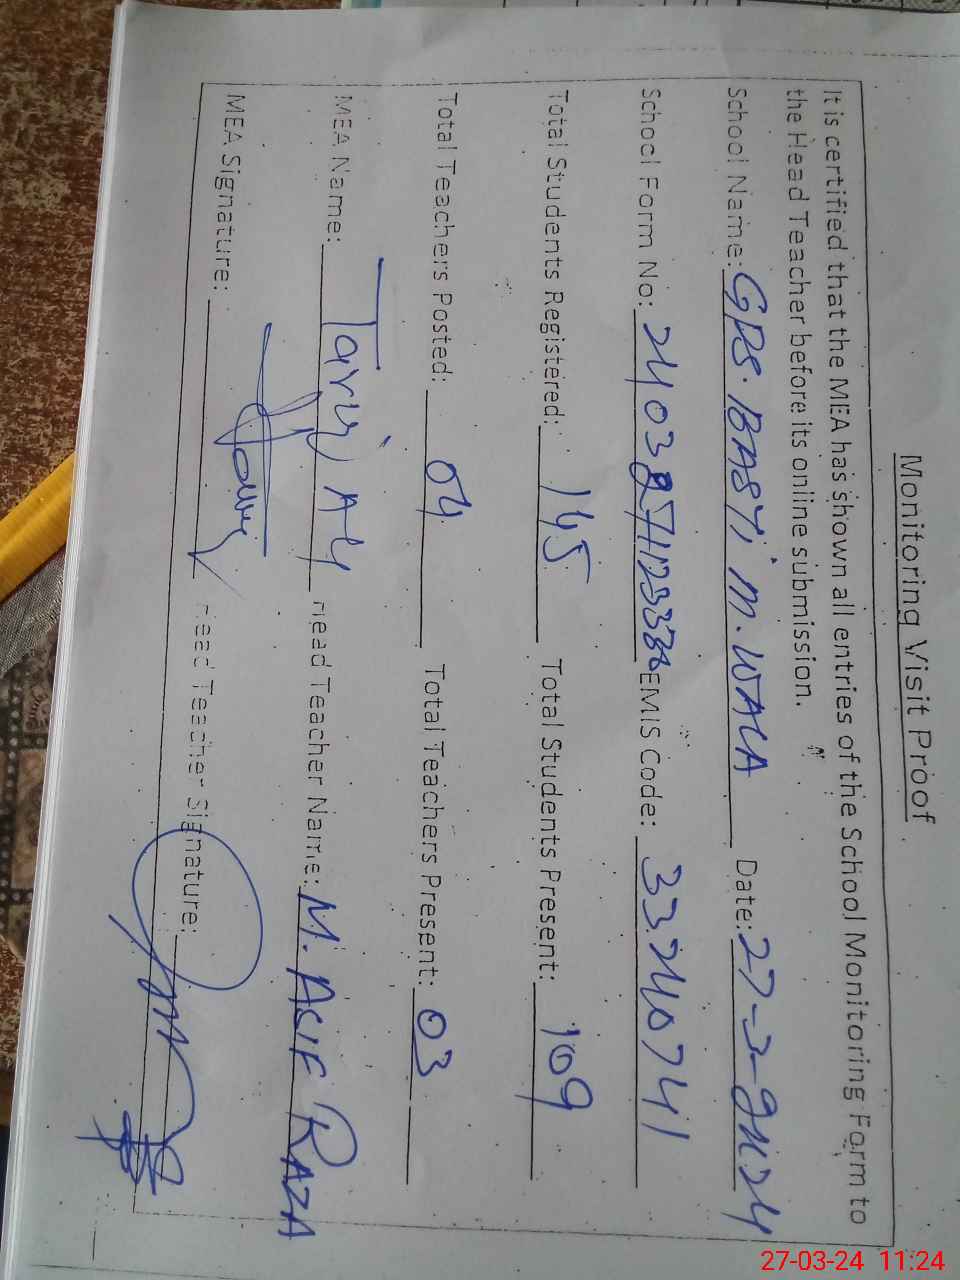 Monitoring Visit Proof
It is certified that the MEA has shown all entries of the School Monitoring Form to
the Head Teacher before its online submission.
School Name: GPS. BASTI M. WALA Date: 27-3-2024
School Form No: EMIS Code: 33240741
Total Students Registered: 145 Total Students Present: 109
Total Teachers Posted: 04 Total Teachers Present: 03
MEA Name: Tariq Ali Head Teacher Name: M. ASIF RAZA
MEA Signature: Head Teacher Signature:
27-03-24 11:24